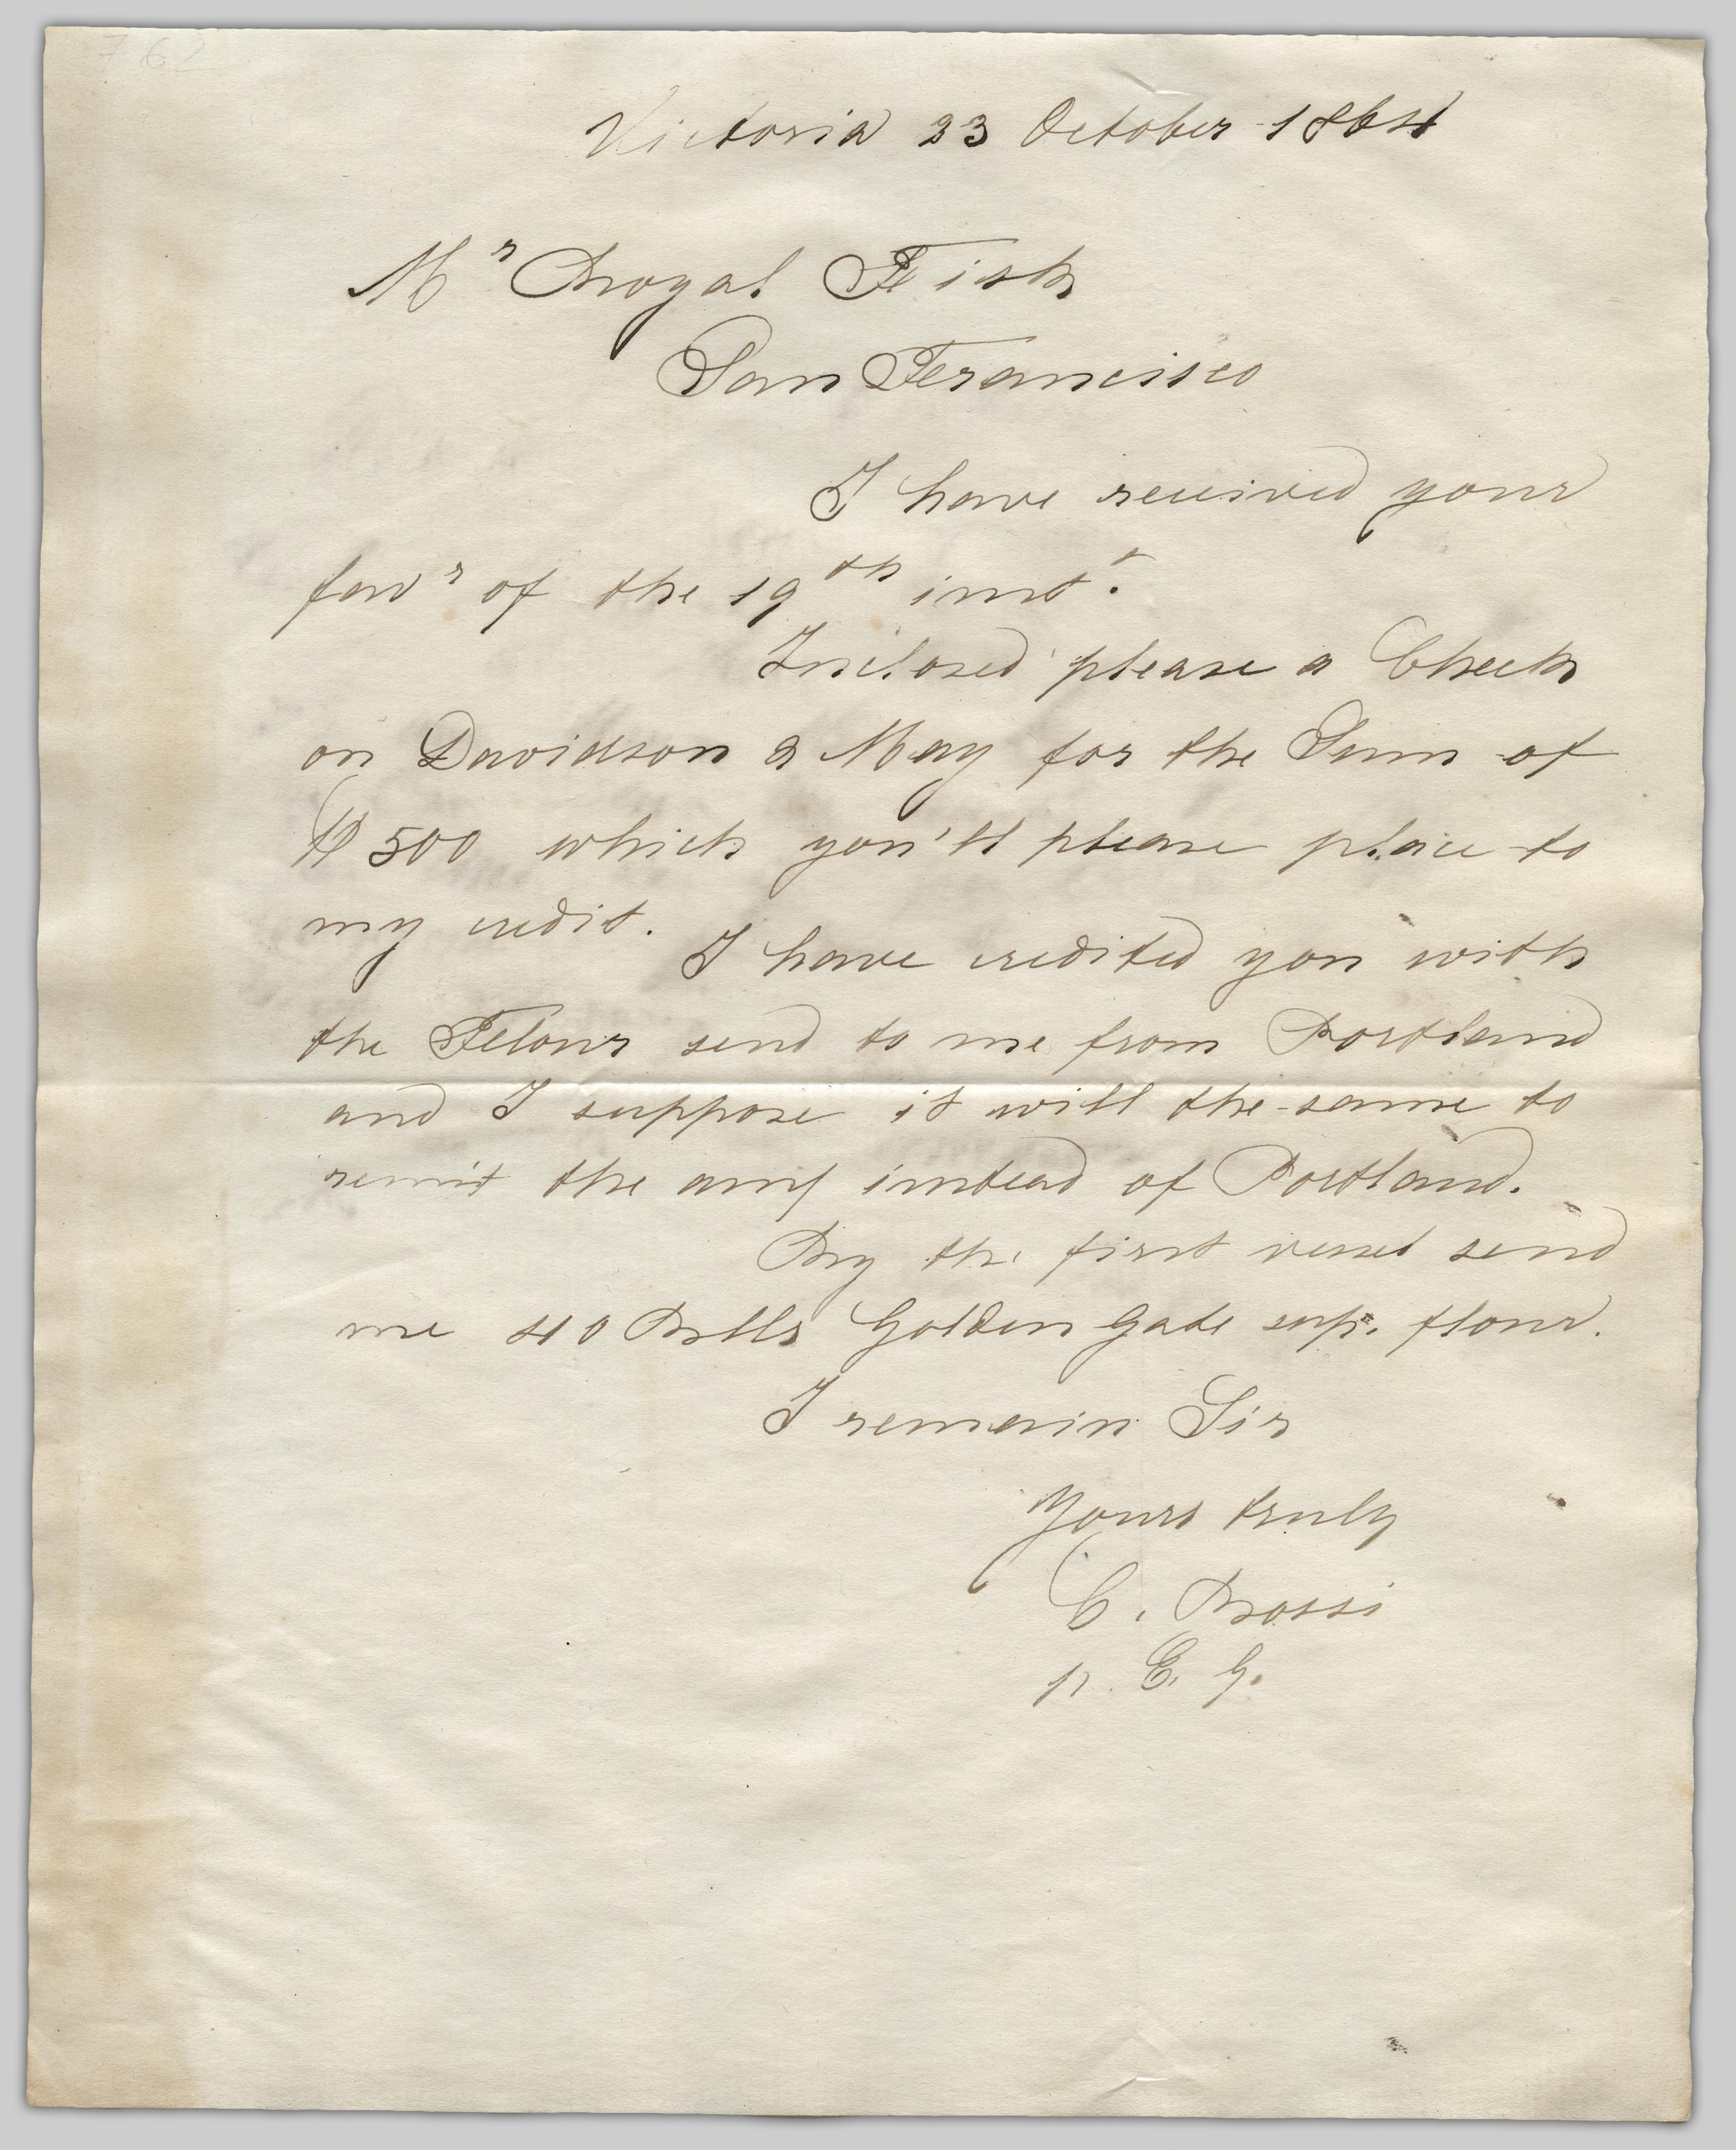 762
Victoria 23 October 1864
Mr Royal Fisk
San Francisco
I have received your
favr of the 19th inst.
Inclosed please a Check
on Davidson & May for the Sum of
$500 which you'll please place to
my credit.
I have credited you with
the Flour send to me from Portland
and I suppose it will the same to
remit the amt instead of Portland.
By the first vessel send
me 40 Bblls Golden Gate supr. flour.
I remain Sir
Yours truly
C. Bossi
p. E. G.